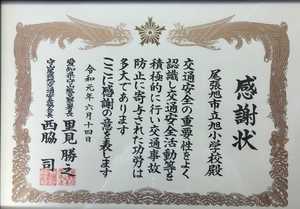 感謝状
尾張旭市立旭小学校殿
交通安全の重要性をよく
認識し交通安全活動等を
積極的に行い交通事故
防止に寄与された功労は
多大であります
ここに感謝の意を表します
令和元年六月十四日
愛知県守山警察署長
里見勝之
西脇司